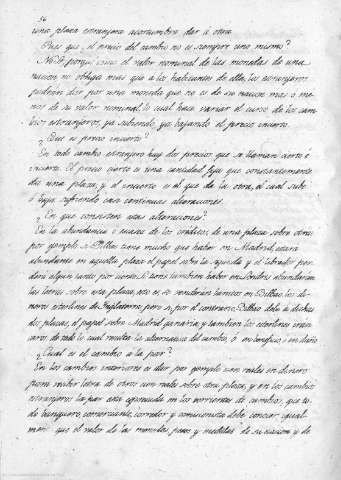 56
una plaza estrangera acostumbra dar á otra.
Pues que, el precio del cambio no es siempre uno mismo?
No Sr. porque como el valor nominal de las monedas de una
nacion no obliga mas que a los habitantes de ella, los estrangeros
podrán dar por una moneda que no es de su nacion mas o me-
nos de su valor nominal, lo cual hace variar el curso de los cam-
bios estrangeros, ya subiendo, ya bajando el precio incierto.
¿Que es precio incierto?
En todo cambio estrangero hay dos precios que se llaman cierto é
incierto. El precio cierto es una cantidad fija que constantemente
da una plaza, y el incierto es el que da la otra, el cual sube
ó baja sufriendo casi continuas alteraciones.
¿En que consisten estas alteraciones?
En la abundancia ó escasez de los creditos de una plaza sobre otra:
por egemplo si Bilbao tiene mucho que haber en Madrid, estará
abundante en aquella plaza el papel sobre la segunda y el librador per-
derá algun tanto por ciento. Si tiene tambien haber en Londres abundarán
las letras sobre esta plaza, esto es, se venderán baratos en Bilbao los di-
neros esterlines de Inglaterra, pero si por el contrario Bilbao debe á dichas
dos plazas, el papel sobre Madrid ganaria y tambien los esterlines
de todo lo cual resulta la alternativa del cambio, ó en beneficio ó en daño
¿Cual es el cambio a la par?
En los cambios interiores es dar por egemplo cien reales en dinero
para recibir letra de otros cien reales sobre otra plaza, y en los cambios
estrangeros la par está espresada en las corrientes de cambios, que to-
do banquero, comerciante, corredor y comisionista debe conocer, igual-
mente que el valor de las monedas, pesos y medidas de su nacion y de